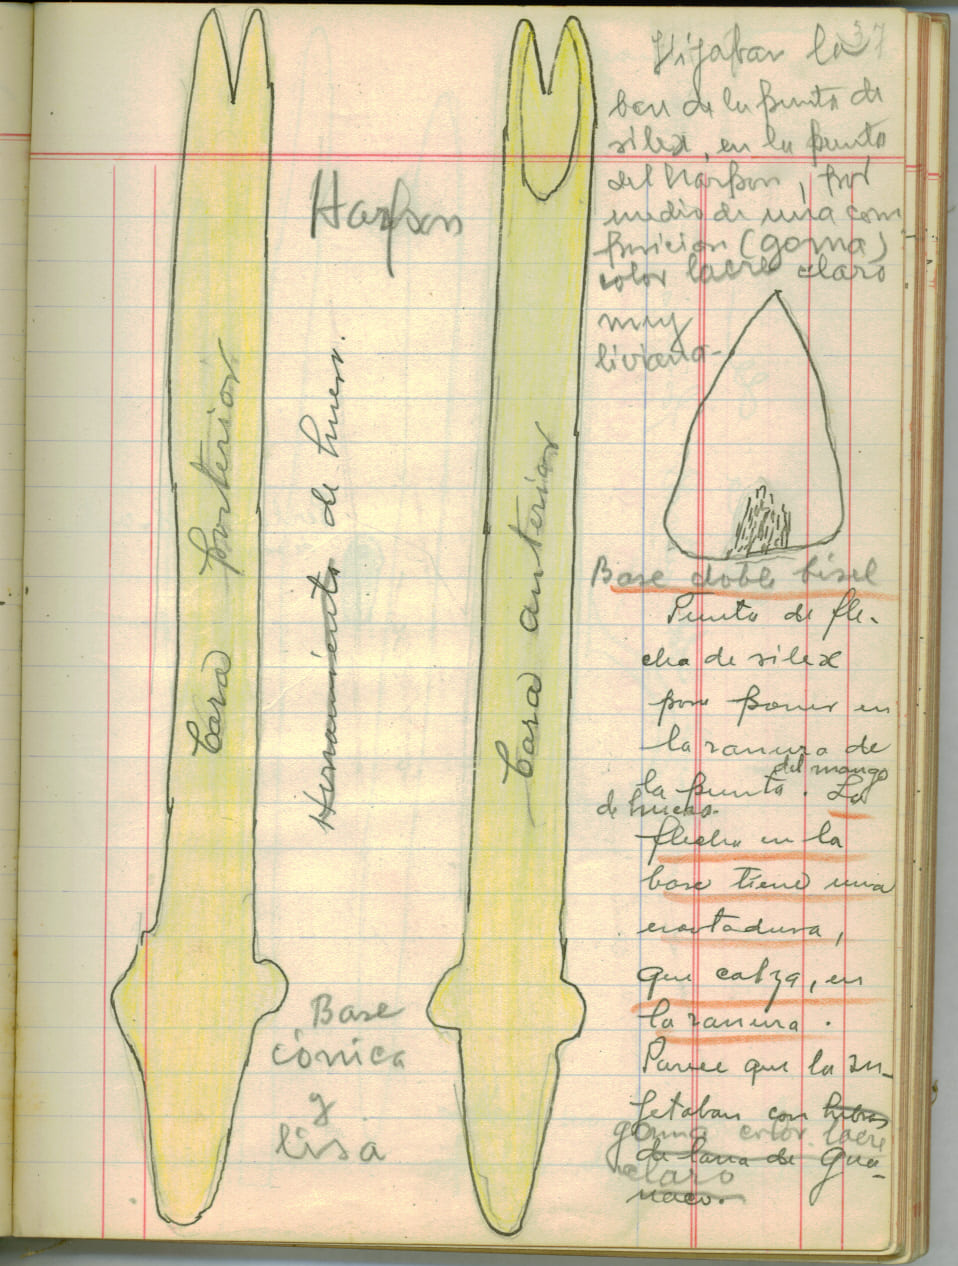 37
Fijaban la
base de la punta de
silex, en la punta
del harpon, por
medio de una com
posicion (goma)
color lacre claro
muy
liviana-
Harpon
Cara posterior
Herramienta de hueso.
Cara anterior
Base doble bisel
Punta de fle-
cha de silex
para poner en
la ranura de
la punta. del mango
de hueso. La
flecha en la
base tiene una
cortadura,
que calza, en
la ranura.
Parece que la su-
jetaban con hebras
goma color lacre
de lana de gua-
claro
naco.
Base
cónica
y
lisa